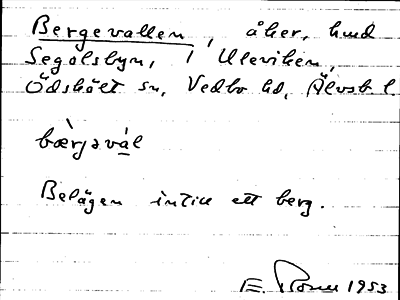 Bergevallen, åker, hmd
Segolsbyn, i Uleviken,
Ödskölt sn, Vedbo hd, Älvsb. l.
bæ̀rjəvál
Belägen intill ett berg.
E. 1953